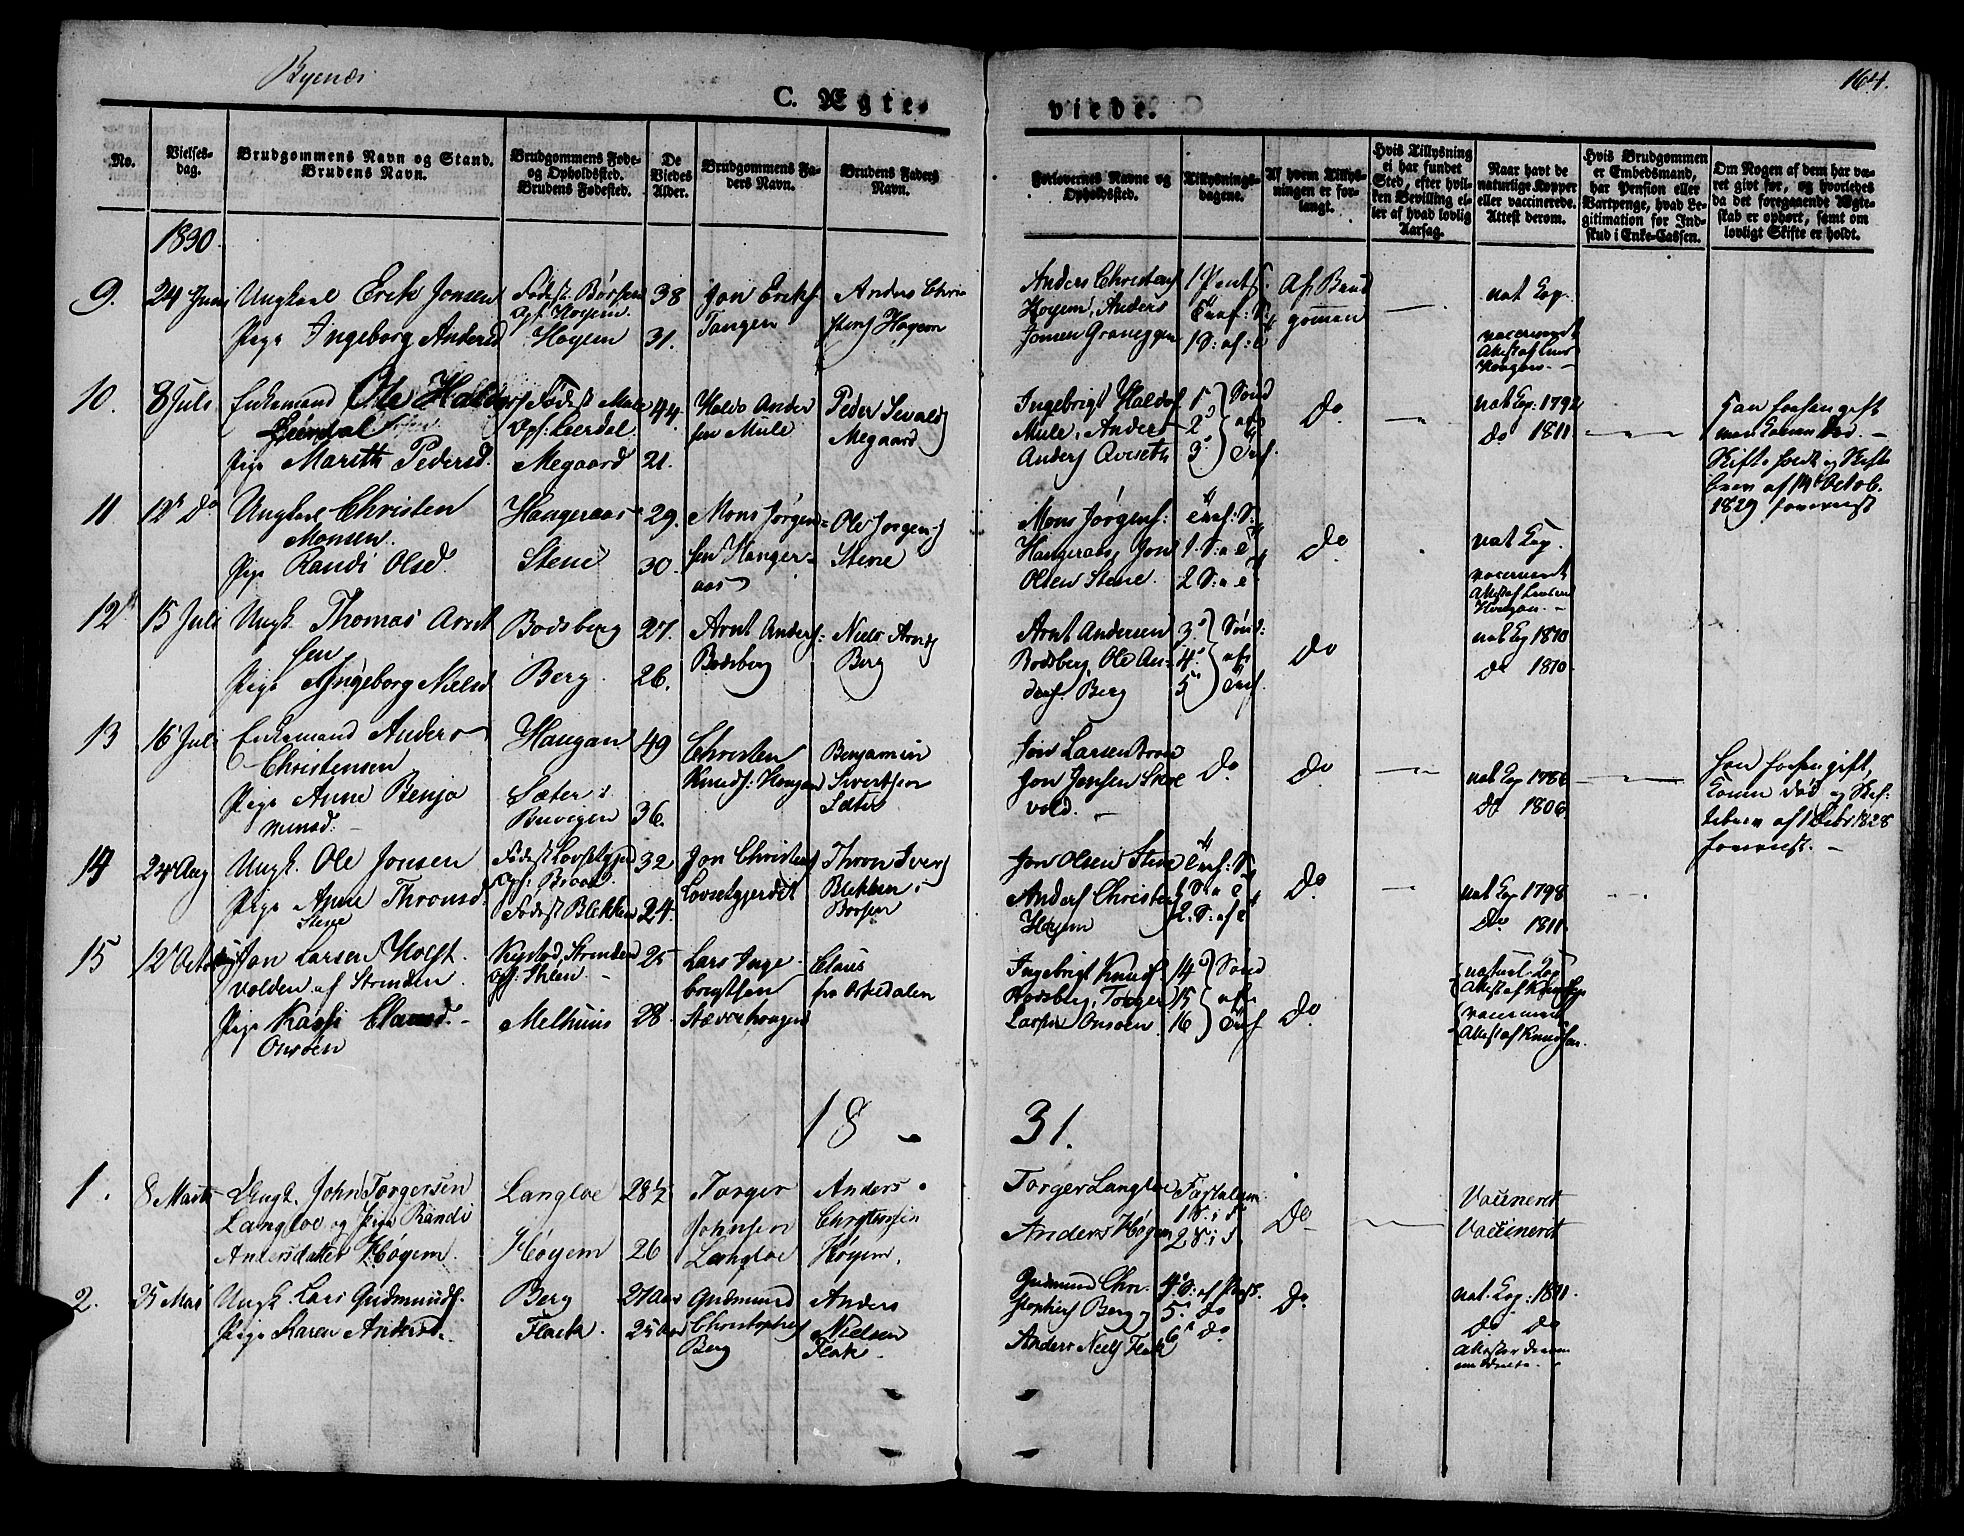 Byenæs
164.
C. Ægte-
viede.
No.
Vielses-
dag.
Brudgommens Navn og Stand.
Brudens Navn.
Brudgommens Føde-
og Opholdsted.
Brudens Fødested.
De
Viedes
Alder.
Brudgommens Fa-
ders Navn.
Brudens Faders
Navn.
Forlovernes Navne og
Opholdsted.
Tillysnings-
dagene.
Af hvem Tillys-
ningen er for-
langt.
Hvis Tillysning
ei har fundet
Sted, efter hvil-
ken Bevilling el-
ler af hvad lovlig
Aarsag.
Naar havt de
naturlige Kopper
eller vaccinerede.
Attest derom.
Hvis Brudgommen
er Embedsmand,
har Pension eller
Vartpenge, hvad Le-
gitimation for Ind-
skud i Enke-Cassen.
Om Nogen af dem har væ-
ret givt før, og hvorledes
da det foregaaende Ægte-
skab er ophørt, samt om
lovligt Skifte er holdt.
1830
9.
24 Juni
Ungkarl Erik Jonsen
Pige Ingeborg Andersd
Fødest. Børsen
Ops. Høyem.
Høyem
38
31.
Jon Eriks.
Tangen
Anders Chri
stens Høyem
Anders Christens
Høyem, Anders
Jonsen Graneggen
Af Brud
gommen
nat Kop.
10.
8 Juli
Enkemand Ole Haldors
Leerdal
Pige Marith Pedersd.
Fødest Mule
Ops. Leerdal.
Megaard
44.
21.
Haldo Ander
sen Mule
Peder Sivalds
Megaard
Ingebrigt Haldos
Mule, Anders
Anders Qveseth
1
2
3
Do
nat Kop: 1792
do 1811.
han forhen gift
men Konen død. –
Skifte holdt og Skifte
brev af 14 Octob.
1829 foreviist
11
12 Do
Ungkarl Christen
Monsen.
Pige Randi Olsd.
Haugeraas
Stene
29.
30.
Mons Jørgen
sen Hanger-
aas
Ole Jørgens
Stene
Mons Jørgens:
Hangeraas, Jon
Olsen Stene.
Do
nat Kop.
12
15 Juli
Ungk. Thomas Arnt
sen
Pige Ingeborg Nielsd
Bodsberg
Berg.
27.
26.
Arnt Anders:
Bodsberg
Niels Arnds
Berg
Arnt Andersen
Bodsberg, Ole An-
ders. Berg
3
4
5
Do
nat Kop 1810
do 1810.
13
16 Juli
Enkemand Anders
Christensen
Pige Anne Benja
minsd.
Haugan
Sæter i
Buvigen
49
36.
Christen
Knuds: Haugan
Benjamin
Sivertsen
Sæter
Jon Larsen
Jon Jonsen Skoe
vold.
Do
Do
nat Kop 1786
do 1806.
han forhen gift,
Konen død og Skif-
tebrev af 1828
foreviist. –
14
24 Aug
Ungk. Ole Jonsen
Pige Anne Thronsd.
Stene
Fødest Blekken
32
24.
Jon Christens
Thron Ivers
Blekken i
Børsen
Jon Olsen Stene
Anders Christens
Høyem
Do.
nat Kop 1798
Do. 1811.
15
12 Octob
Jon Larsen Holst
volden af Strinden
Pige Clausd. –
Onsøen
Melhuus
25
28.
Lars Inge
brigtsen
Claus
fra Orkedalen
Ingebrigt Knuds
Bodsberg, Torger
Larsen Onsøen
14
15
16
Do
Attest af Knudsen.
18 –
31.
1.
8 Marts
Ungk. John Torgersen
Langloe og Pige Randi
Andersdatter Høyem.
Langloe
Høyem
28½
26
Torger
Johnsen
Langloe
Anders
Christensen
Høyem.
Torger Langloe
Anders Høyem
Do
Vaccineret
Vaccineret
2.
25 Mai
Ungk. Lars Gudmunds.
Pige Karen Andersd.
Berg
Flack.
21 Aar
25 Aar
Gudmund
Christophers
Berg
Anders
Nielsen
Flak.
Gudmund Chri-
stophers Berg og
Anders Niels Flak
4 S. af Pasc.
5. do
6. do
Do
nat. Kop: 1811.
do do
Attester derom